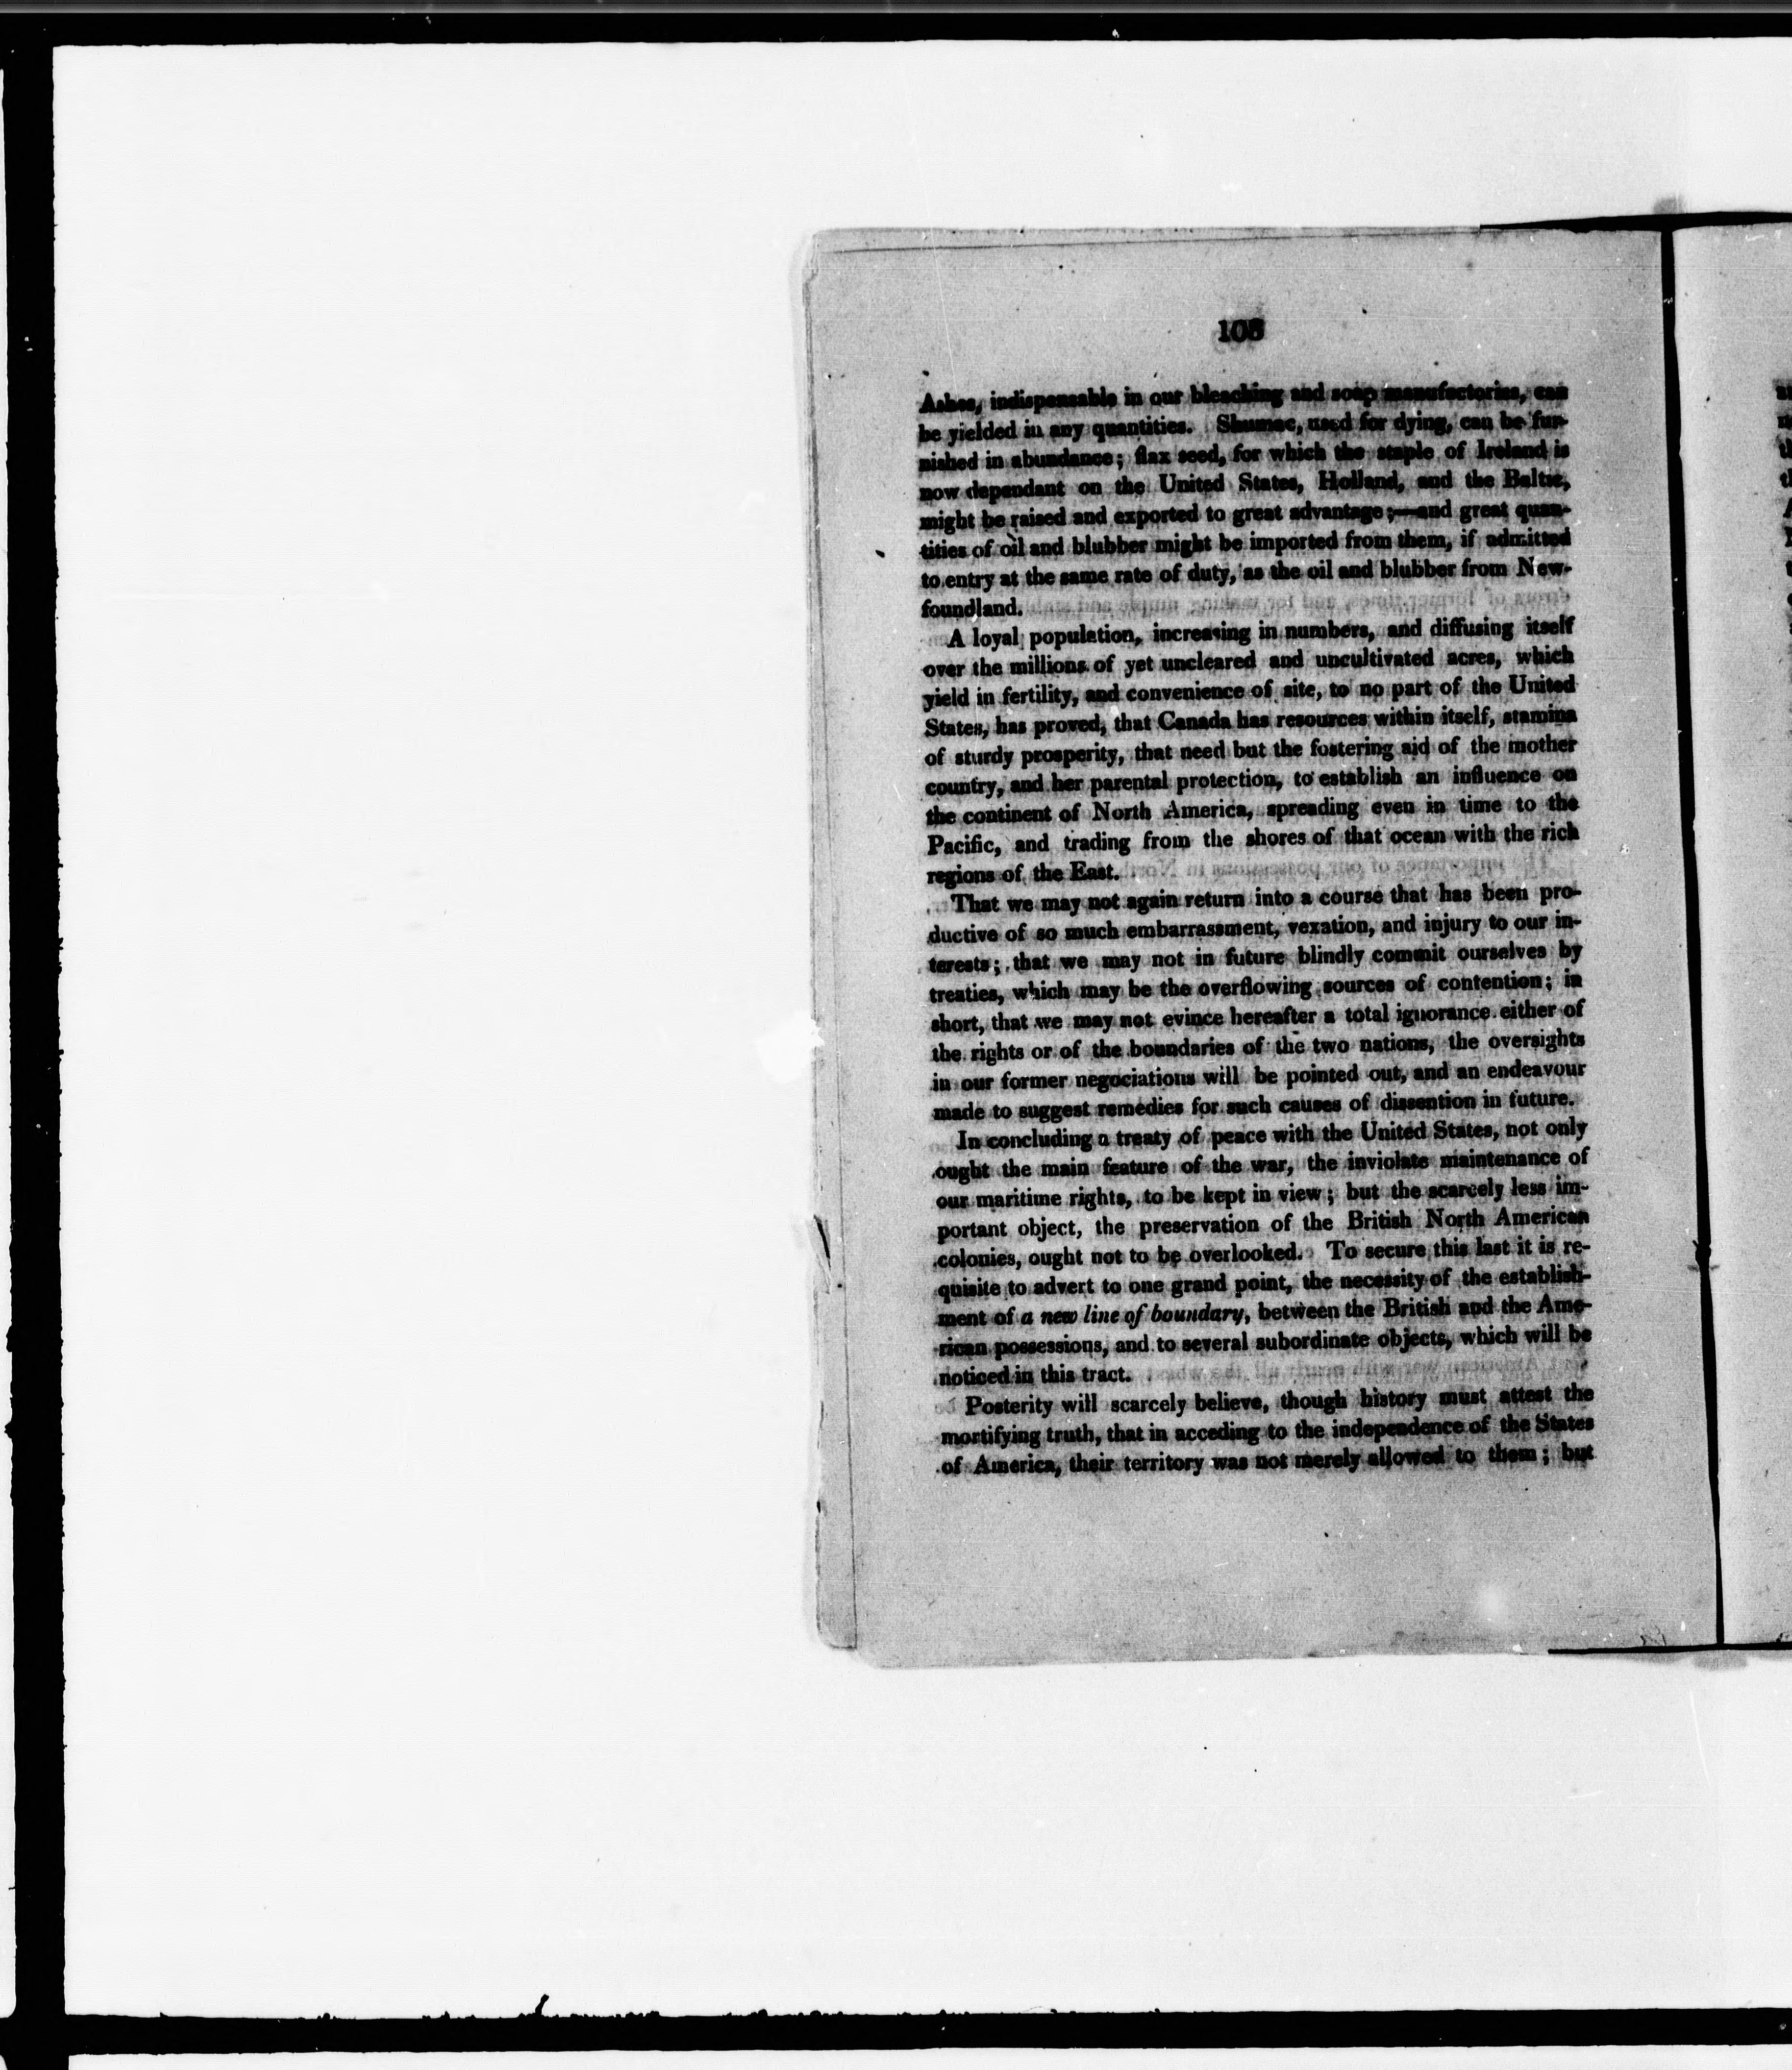 103
Ashes, indispensable in our bleaching and soap manufactories, can
be yielded in any quantities. Shumac, used for dying, can be fur-
nished in abundance; flax seed, for which the staple of Ireland is
now dependant on the United States, Holland, and the Baltic,
might be raised and exported to great advantage;—and great quan-
tities of oil and blubber might be imported from them, if admitted
to entry at the same rate of duty, as the oil and blubber from New-
foundland.
A loyal population, increasing in numbers, and diffusing itself
over the millions of yet uncleared and uncultivated acres, which
yield in fertility, and convenience of site, to no part of the United
States, has proved, that Canada has resources within itself, stamina
of sturdy prosperity, that need but the fostering aid of the mother
country, and her parental protection, to establish an influence on
the continent of North America, spreading even in time to the
Pacific, and trading from the shores of that ocean with the rich
regions of the East.
That we may not again return into a course that has been pro-
ductive of so much embarrassment, vexation, and injury to our in-
terests; that we may not in future blindly commit ourselves by
treaties, which may be the overflowing sources of contention; in
short, that we may not evince hereafter a total ignorance either of
the rights or of the boundaries of the two nations, the oversights
in our former negociations will be pointed out, and an endeavour
made to suggest remedies for such causes of dissention in future.
In concluding a treaty of peace with the United States, not only
ought the main feature of the war, the inviolate maintenance of
our maritime rights, to be kept in view; but the scarcely less im-
portant object, the preservation of the British North American
colonies, ought not to be overlooked. To secure this last it is re-
quisite to advert to one grand point, the necessity of the establish-
ment of a new line of boundary, between the British and the Ame-
rican possessions, and to several subordinate objects, which will be
noticed in this tract.
Posterity will scarcely believe, though history must attest the
mortifying truth, that in acceding to the independence of the States
of America, their territory was not merely allowed to them; but